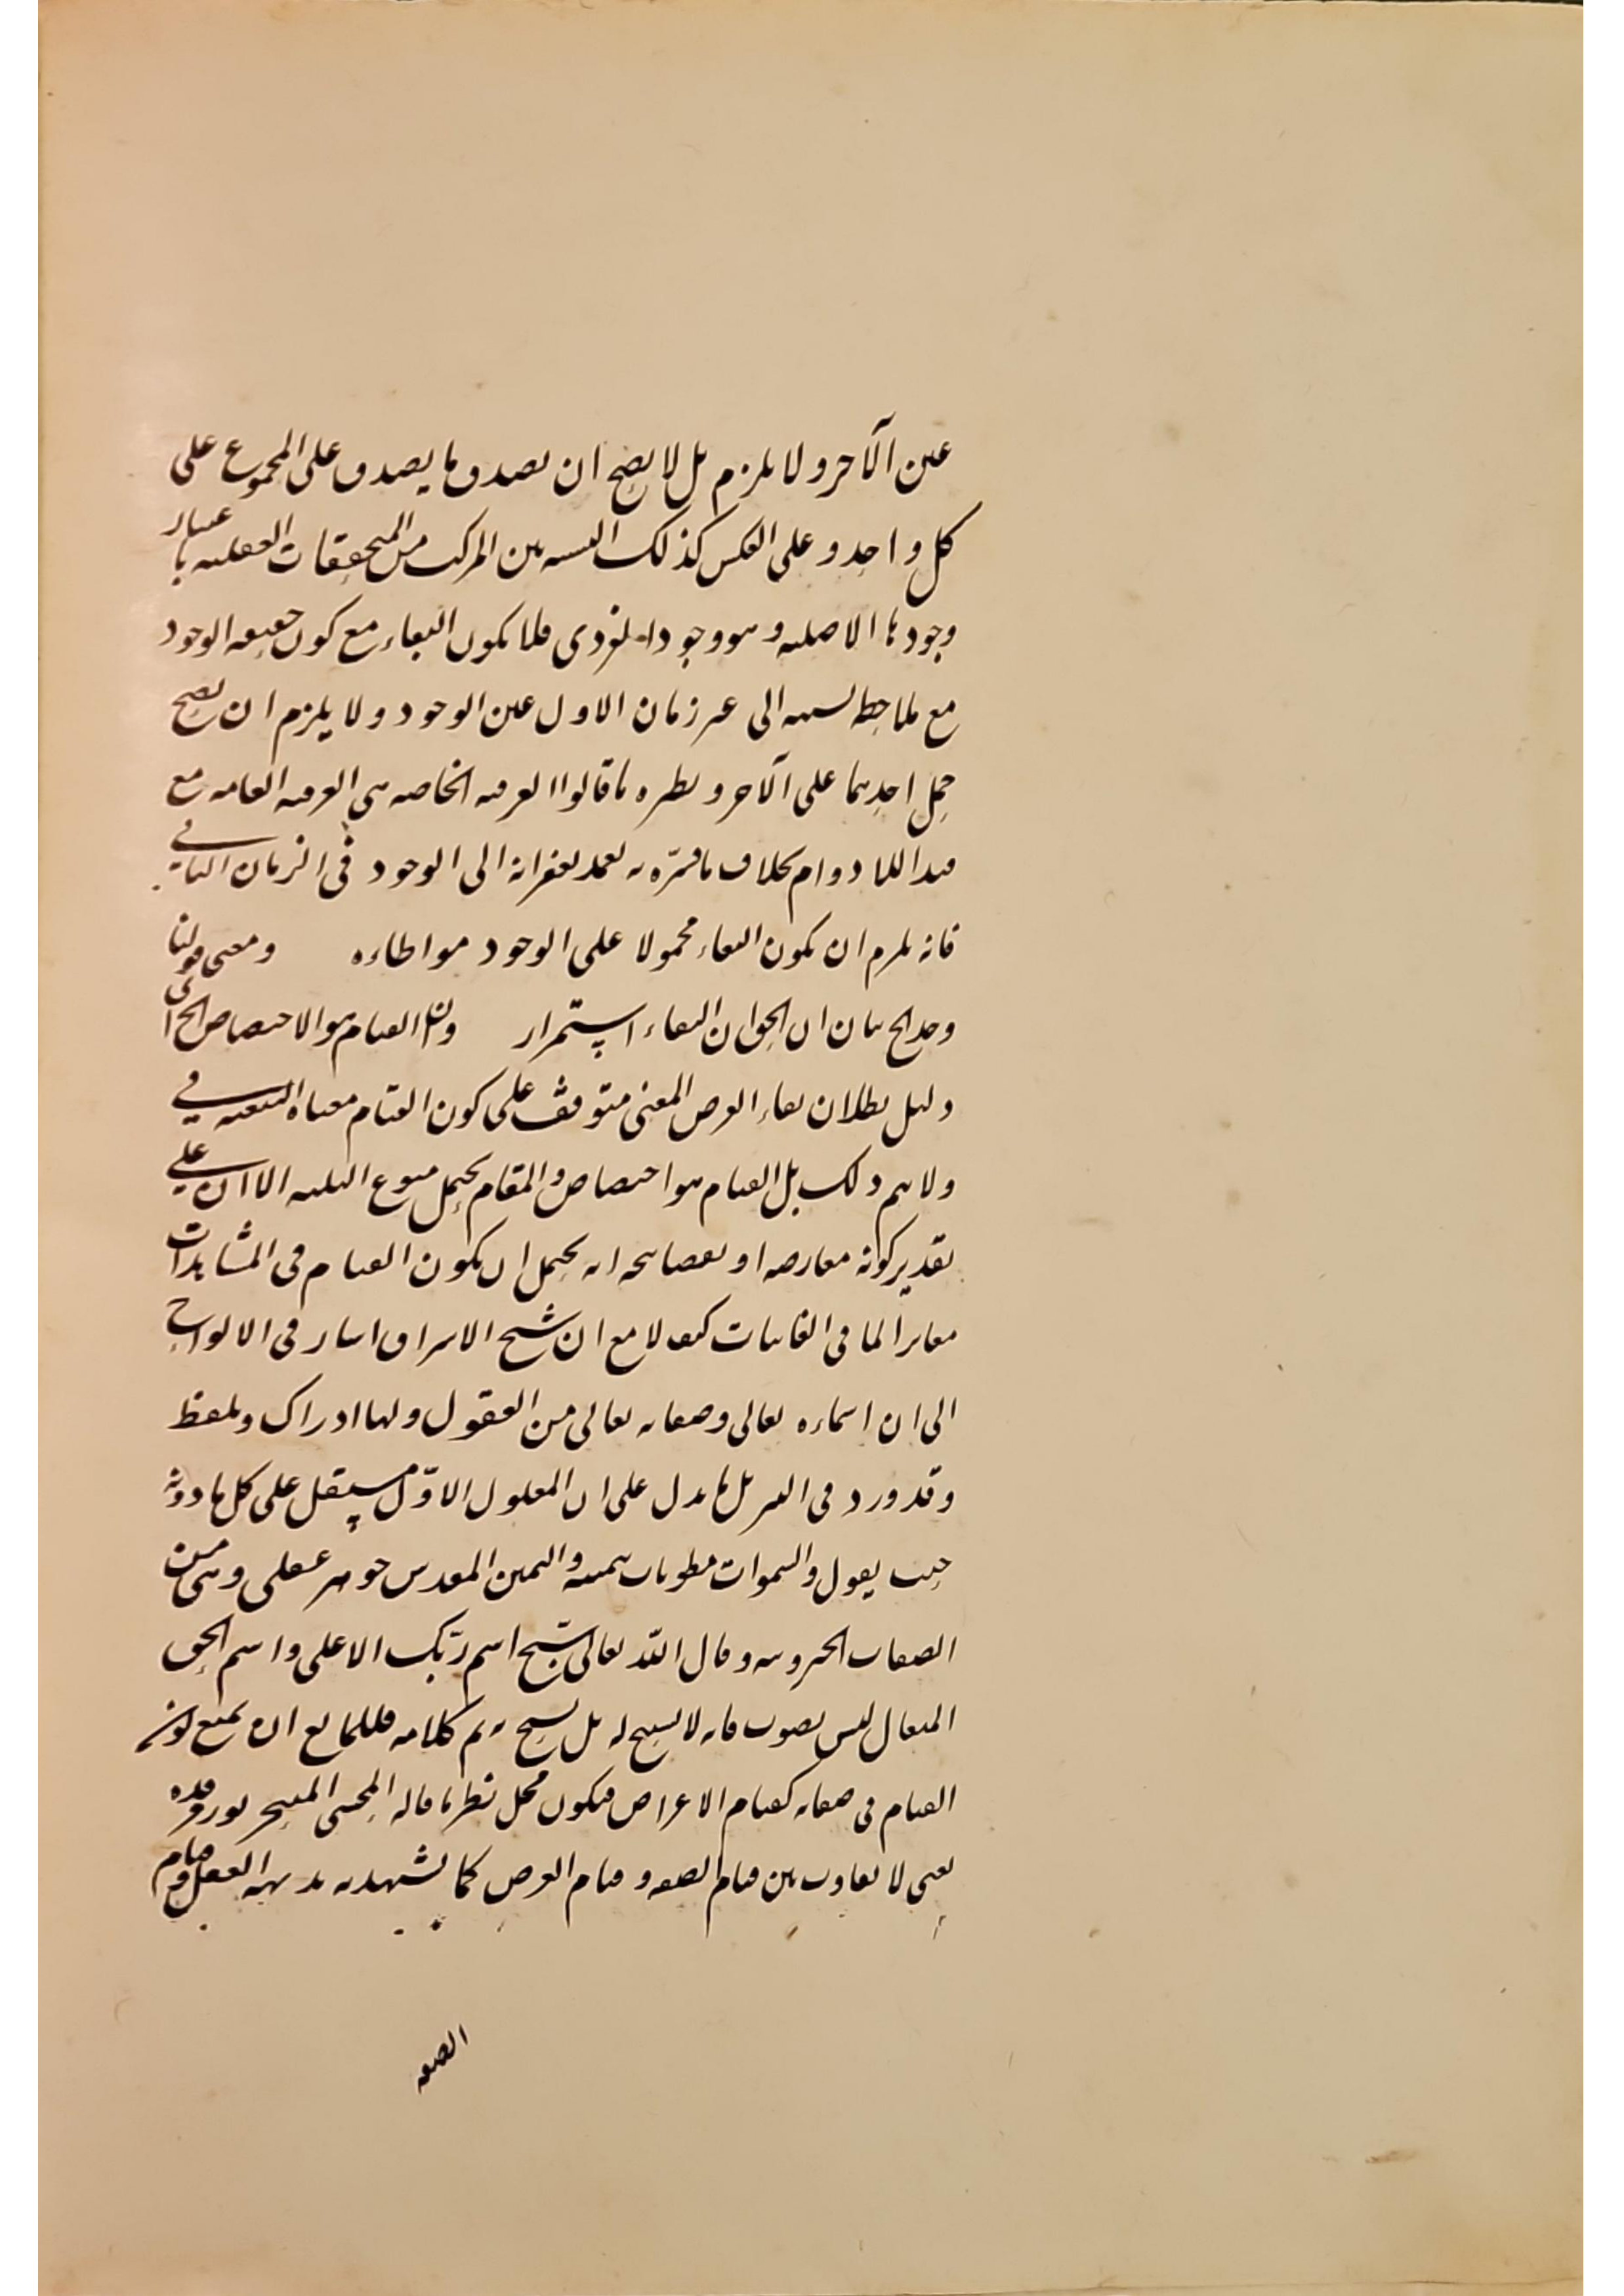 عين الآخر ولا يلزم بل لا يصح ان يصدق ما يصدق على المجموع على
كل واحد وعلى العكس كذلك النسبة بين المركب من المتحققات العقلية باعتبار
وجودها الاصلية وهو وجود فلا يكون البقاء مع كون حقيقة الوجود
مع ملاحظة نسبته الى غير زمان الاول عين الوجود ولا يلزم ان يصح
حمل احدهما على الآخر ونظيره ما قالوا العرفية الخاصة هي العرفية العامة مع
قيد اللادوام بخلاف ما فسّره الى الوجود في الزمان الثاني
فانه يلزم ان يكون البقاء محمولا على الوجود مواطاءه ومعنى قولنا
وجد الخ بيان ان الحق ان البقاء استمرار وان القيام هو الاختصاص الخ اى
دليل بطلان بقاء العرض المعنى متوقف على كون القيام معناه التبعية في
ولا يتم ذلك بل القيام هو اختصاص والمقام يحتمل الا ان على
تقدير كونه معارضه او نقضا يتجه انه يحتمل ان يكون القيام في المشاهدات
مغايرا لما في الغائبات كيف لا مع ان شيخ الاشراق اشار في الالواح
الى ان اسماءه تعالى وصفاته تعالى من العقول ولها ادراك وتلفظ
وقد ورد في التنزيل ما يدل على ان المعلول الاوّل مستقل على كل ما دونه
حيث يقول والسموات مطويات بيمينه واليمين المقدس جوهر عقلى وهى من
الصفات وقال الله تعالى سبّح اسم ربّك الاعلى واسم الحق
المتعال ليس بصوت فانه لا يسبح له بل يسبح به تم كلامه فللمانع ان يمنع كون
القيام فى صفاته كقيام الاعراض فيكون محل نظر ما قاله المحشى
يعنى لا تفاوت بين قيام الصفة وقيام العرض كما تشهد به بديهة العقل وقيام
الصفة